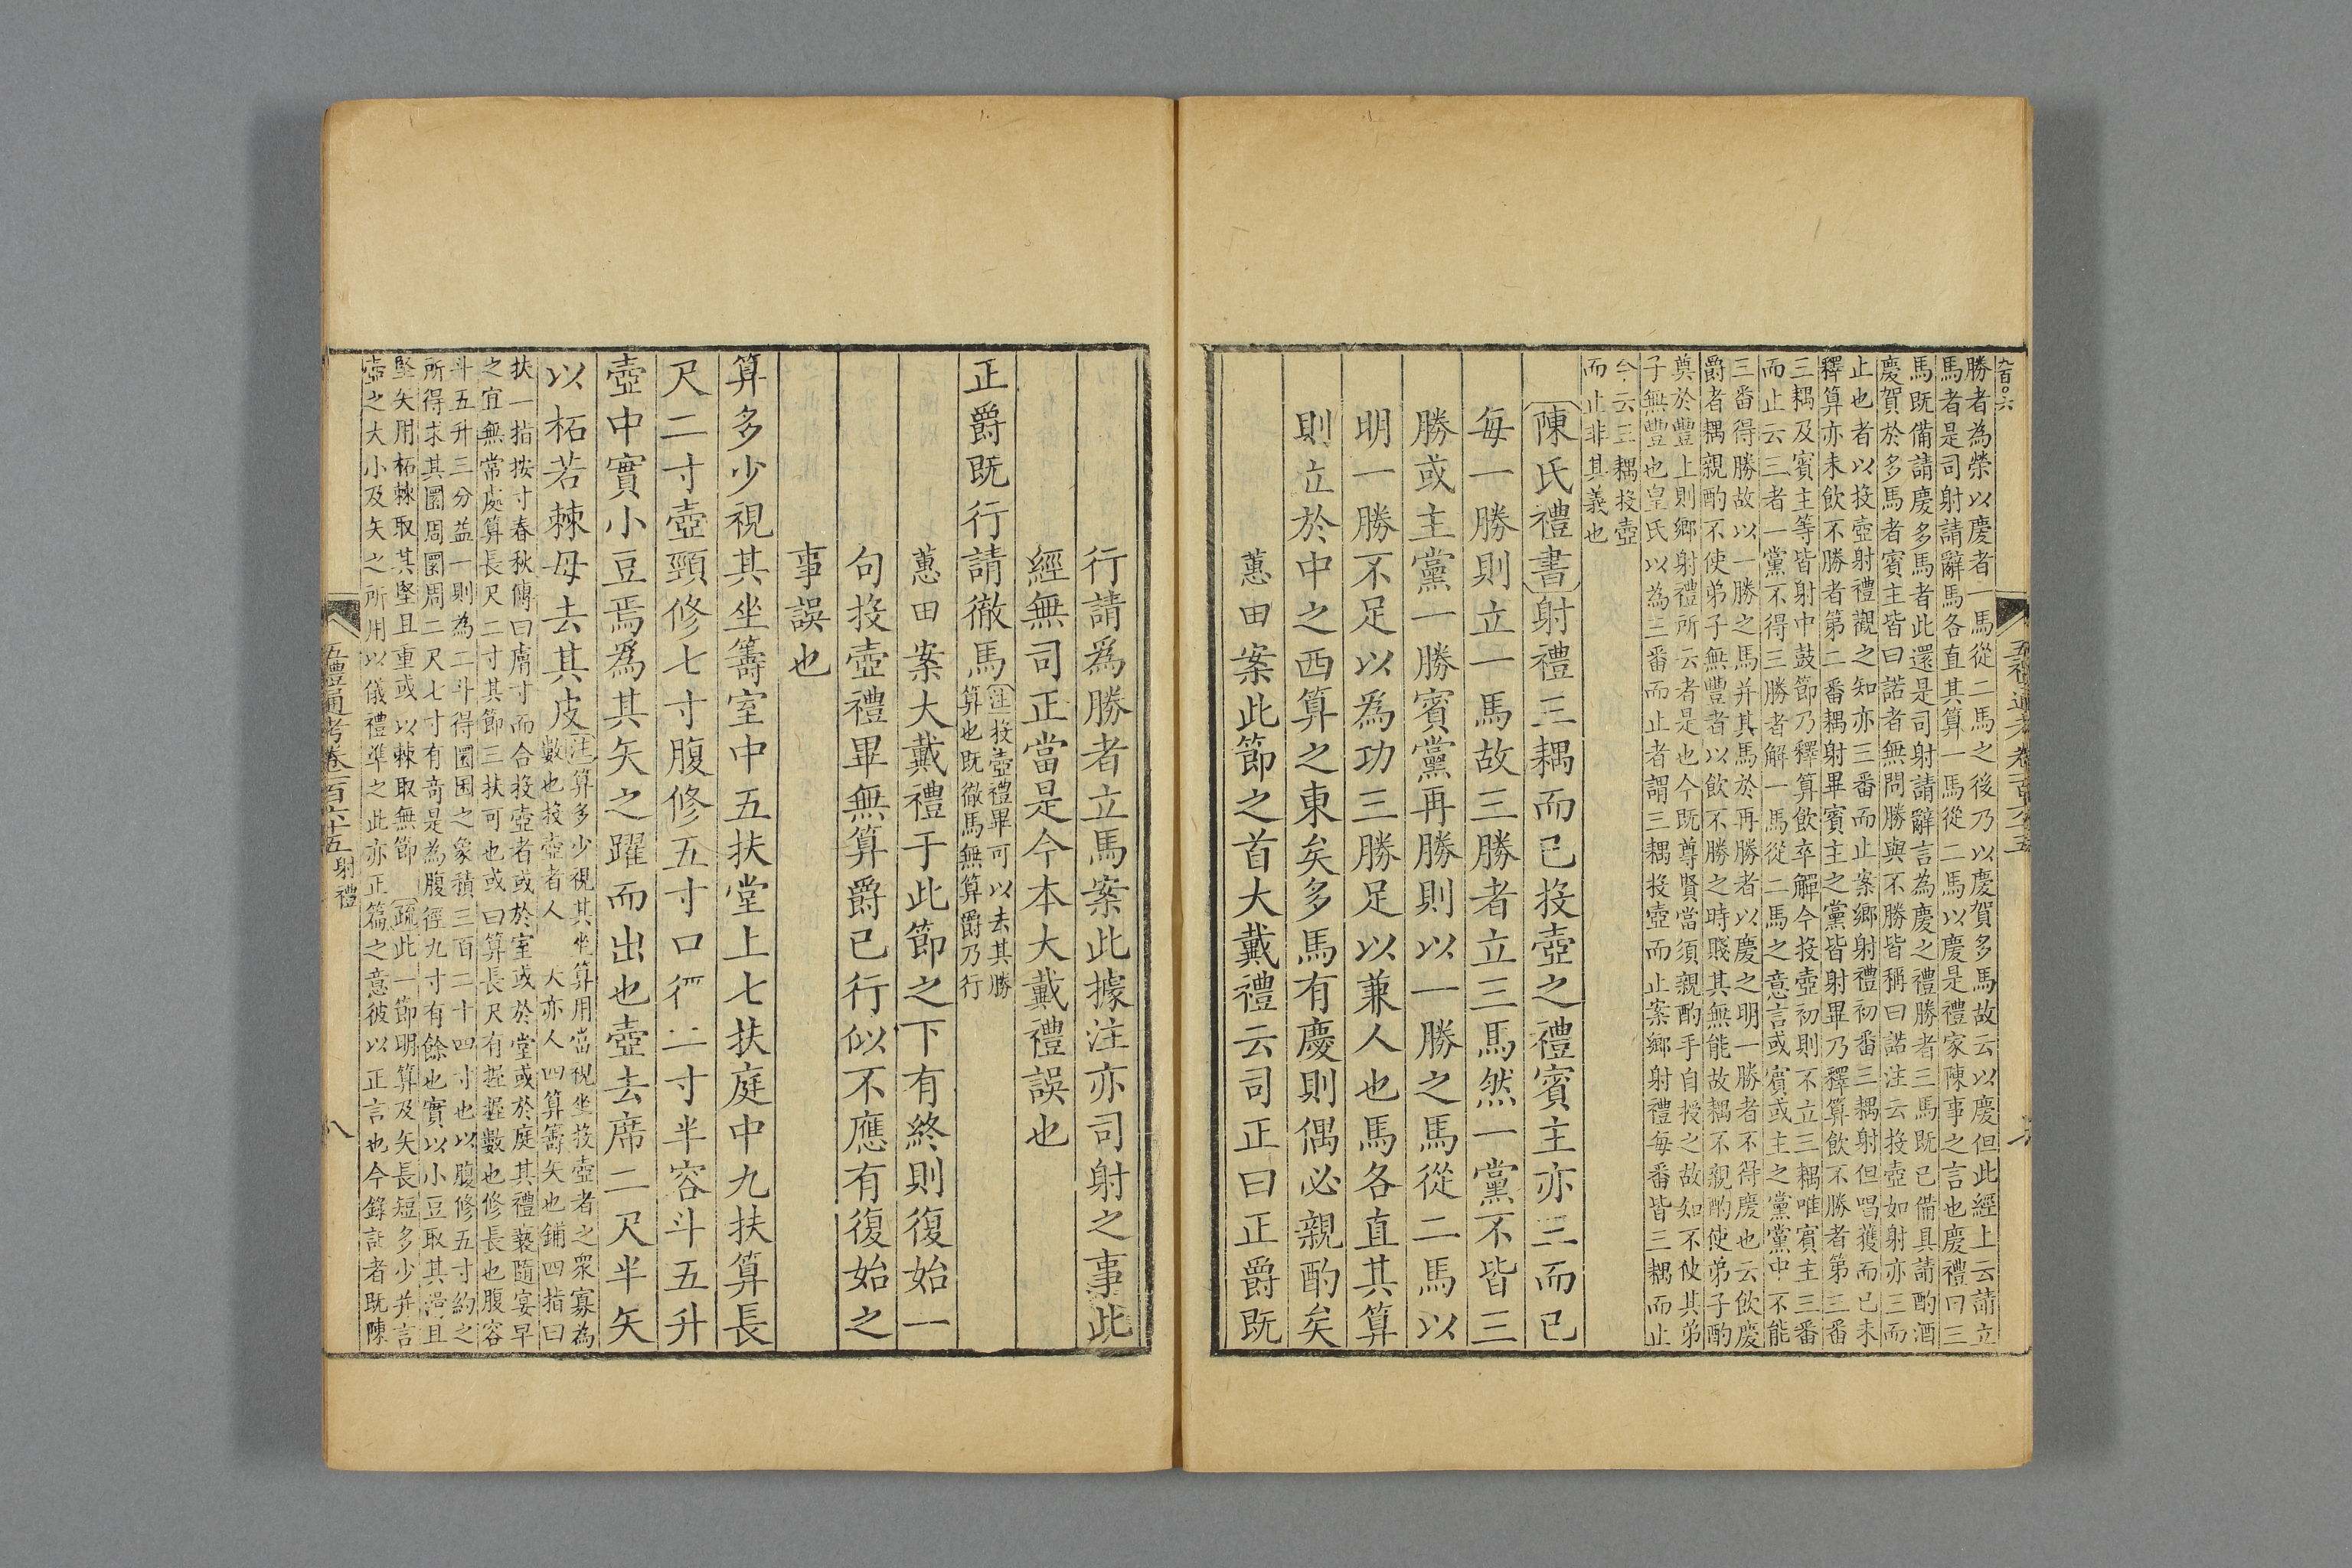 勝者為榮以慶者一馬從二馬之後乃以慶賀多馬故云以慶但此經上云請立
馬者是司射請辭馬各直其算一馬從二馬以慶是禮家陳事之言也慶禮曰三
馬既備請慶多馬者此還是司射請辭言為慶之禮勝者三馬既已備具請酌酒
慶賀於多馬者賓主皆曰諾者無問勝與不勝皆稱曰諾注云投壺如射亦三而
止也者以投壺射禮觀之知亦三番而止案鄉射禮初番三耦射但唱獲而已未
釋算亦未飲不勝者第二番耦射畢賓主之黨皆射畢乃釋算飲不勝者第三番
三耦及賓主等皆射中鼓節乃釋算飲卒觶今投壺初則不立三耦唯賓主三番
而止云三者一黨不得三勝者解一馬從二馬之意言或賓或主之黨黨中不能
三番得勝故以一勝之馬并其馬於再勝者以慶之明一勝者不得慶也云飲慶
爵者耦親酌不使弟子無豐者以飲不勝之時賤其無能故耦不親酌使弟子酌
奠於豐上則鄉射禮所云者是也今既尊賢當須親酌手自授之故知不使其弟
子無豐也皇氏以為三番而止者謂三耦投壺而止案鄉射禮每番皆三耦而止
今云三耦投壺
而止非其義也
陳氏禮書射禮三耦而已投壺之禮賓主亦三而已
每一勝則立一馬故三勝者立三馬然一黨不皆三
勝或主黨一勝賓黨再勝則以一勝之馬從二馬以
明一勝不足以為功三勝足以兼人也馬各直其算
則立於中之西算之東矣多馬有慶則偶必親酌矣
蕙田案此節之首大戴禮云司正曰正爵既
行請爲勝者立馬案此據注亦司射之事此
經無司正當是今本大戴禮誤也
正爵既行請徹馬注投壺禮畢可以去其勝
算也既徹馬無算爵乃行
蕙田案大戴禮于此節之下有終則復始一
句投壺禮畢無算爵已行似不應有復始之
事誤也
算多少視其坐籌室中五扶堂上七扶庭中九扶算長
尺二寸壺頸修七寸腹修五寸口徑二寸半容斗五升
壺中實小豆焉爲其矢之躍而出也壺去席二尺半矢
以柘若棘毋去其皮注算多少視其坐算用當視坐投壺者之眾寡為
數也投壺者人 大亦人四算籌矢也鋪四指曰
扶一指按寸春秋傳曰膚寸而合投壺者或於室或於堂或於庭其禮褻隨宴早
之宜無常處算長尺二寸其節三扶可也或曰算長尺有握握數也修長也腹容
斗五升三分益一則為二斗得圜囷之象積三百二十四寸也以腹修五寸約之
所得求其圜周圜周二尺七寸有奇是為腹徑九寸有餘也實以小豆取其滑且
堅矢用柘棘取其堅且重或以棘取無節疏此一節明算及矢長短多少并言
壺之大小及矢之所用以儀禮準之此亦正篇之意彼以正言也今錄記者既陳
五禮通考卷一百六十五 射禮 八